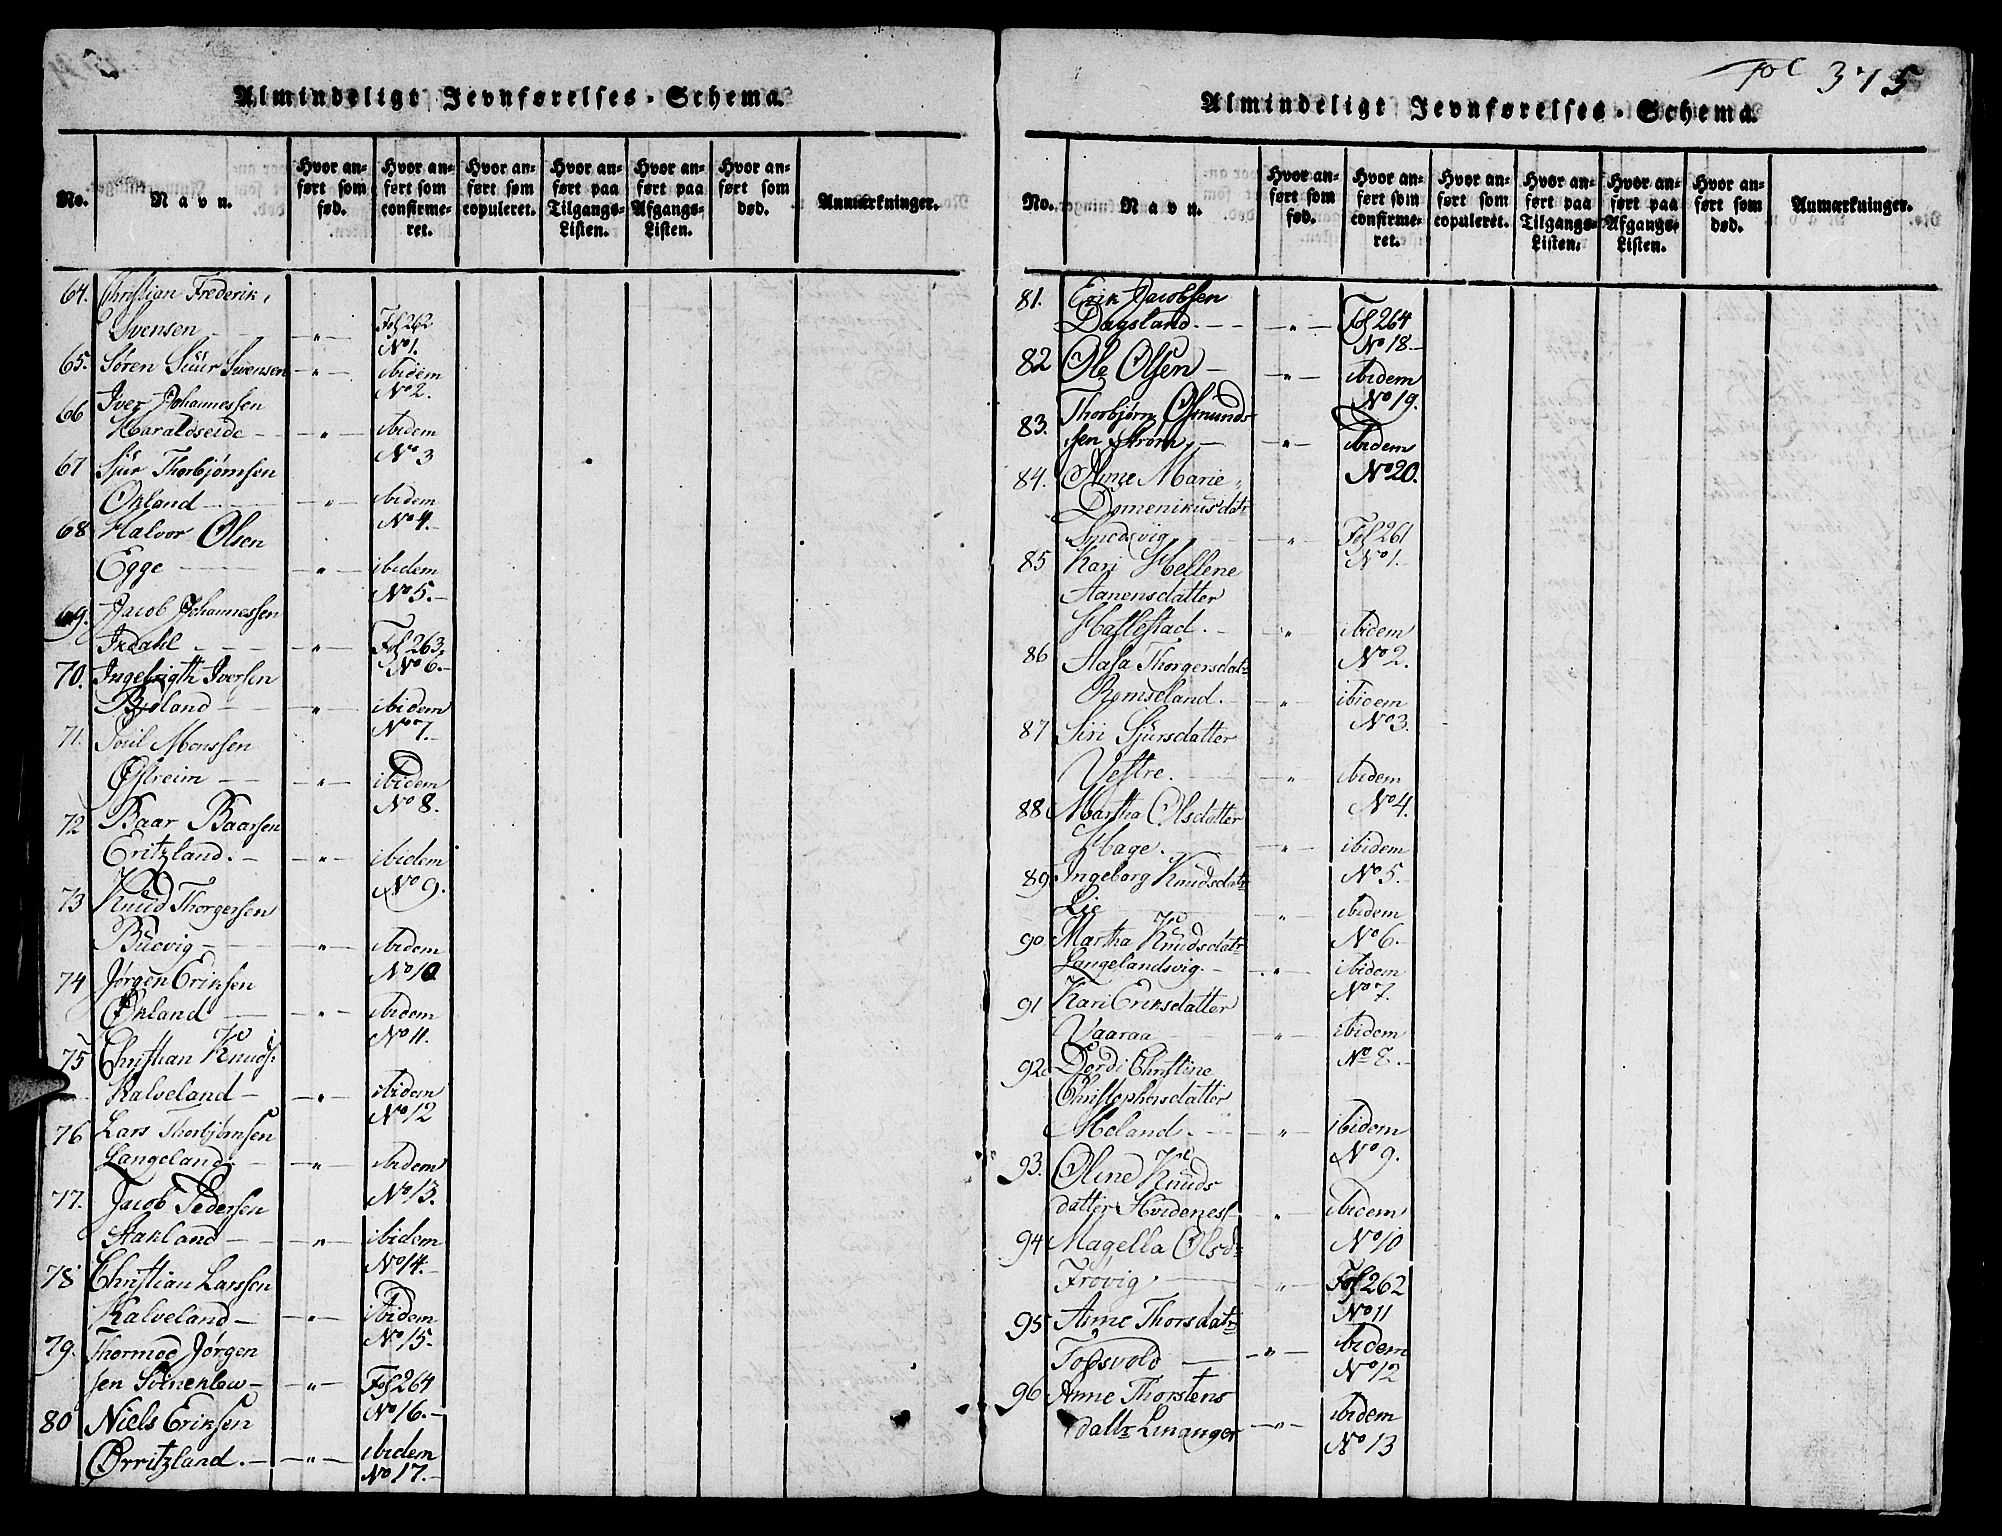 Almindeligt Jevnførelses-Schema.
No.
Navn.
Hvor anført som fød.
Hvor anført som confirmeret.
Hvor anført som copuleret.
Hvor anført paa Tilgangs-Listen.
Hvor anført paa Afgangs-Listen.
Hvor anført som død.
Anmærkninger.
64. Christian Frederik
Svensen — " — Fol 262
No 1.
65. Søren Siur Svensen — " — ibidem
No 2.
66 Iver Johannessen
Haraldseide — " — ibidem
No 3
67 Sjur Thorbjørnsen
Økland — " — ibidem
No 4.
68 Halvor Olsen
Egge — " — ibidem
No 5.
69. Jacob Johannessen
Indahl — " — Fol 263.
No 6.
70. Ingebrigth Iversen
Birkeland — " — ibidem
No 7.
71. Poul Monssen
Østreim — " — ibidem
No 8.
72 Baar Baarsen
Eritzland. — " — ibidem
No 9.
73 Knud Thorgersen
Buevig — " — ibidem
No 10
74 Jørgen Eriksen
Økland — " — ibidem
No 11.
75 Christian Knuds:
Kalveland — " — ibidem
No 12
76 Lars Thorbjørnsen
Langeland. — " — ibidem
No 13.
77. Jacob Pedersen
Aakland — " — ibidem
No 14.
78 Christian Larssen
Kalveland — " — ibidem
No 15.
79. Thormod Jørgen
sen — " — Fol 264
No 16.
80 Niels Eriksen
Ørritzland. — " — ibidem
No 17.
375
Almindeligt Jevnførelses-Schema.
No.
Navn.
Hvor anført som fød.
Hvor anført som confirmeret.
Hvor anført som copuleret.
Hvor anført paa Tilgangs-Listen.
Hvor anført paa Afgangs-Listen.
Hvor anført som død.
Anmærkninger.
81. Erik Jacobsen
Dagsland. — " — Fol 264
No 18.
82 Ole Olsen — " — ibidem
No 19.
83. Thorbjørn Osmunds
sen Strøm. — " — ibidem
No 20.
84. Anne Marie
Domenikusdatr
Smedsvig — " — Fol 261
No 1.
85 Kari Hellene
Aanensdatter
Hallestad. — " — ibidem
No 2.
86 Aasa Thorgersdatr
Romseland. — " — ibidem
No 3.
87 Siri Sjursdatter
Vestre. — " — ibidem
No 4.
88 Martha Olsdatter
Hage. — " — ibidem
No 5.
89. Ingeborg Knudsdatr
Lie — " — ibidem
No 6.
90 Martha Knudsdatr
Langelandsvig. — " — ibidem
No 7.
91 Kari Eriksdatter
Vaaraa — " — ibidem
No 8.
92 Dordi Christine
Christophersdatter
Meland. — " — ibidem
No 9.
93. Oline Knuds
datter Hvidenes — " — ibidem
No 10
94 Magella Olsdr
Frøvig. — " — Fol 262
No 11
95 Anne Thorsdatr
Fossvold — " — ibidem
No 12
96 Anne Thorstens
datr Linanger — " — ibidem
No 13